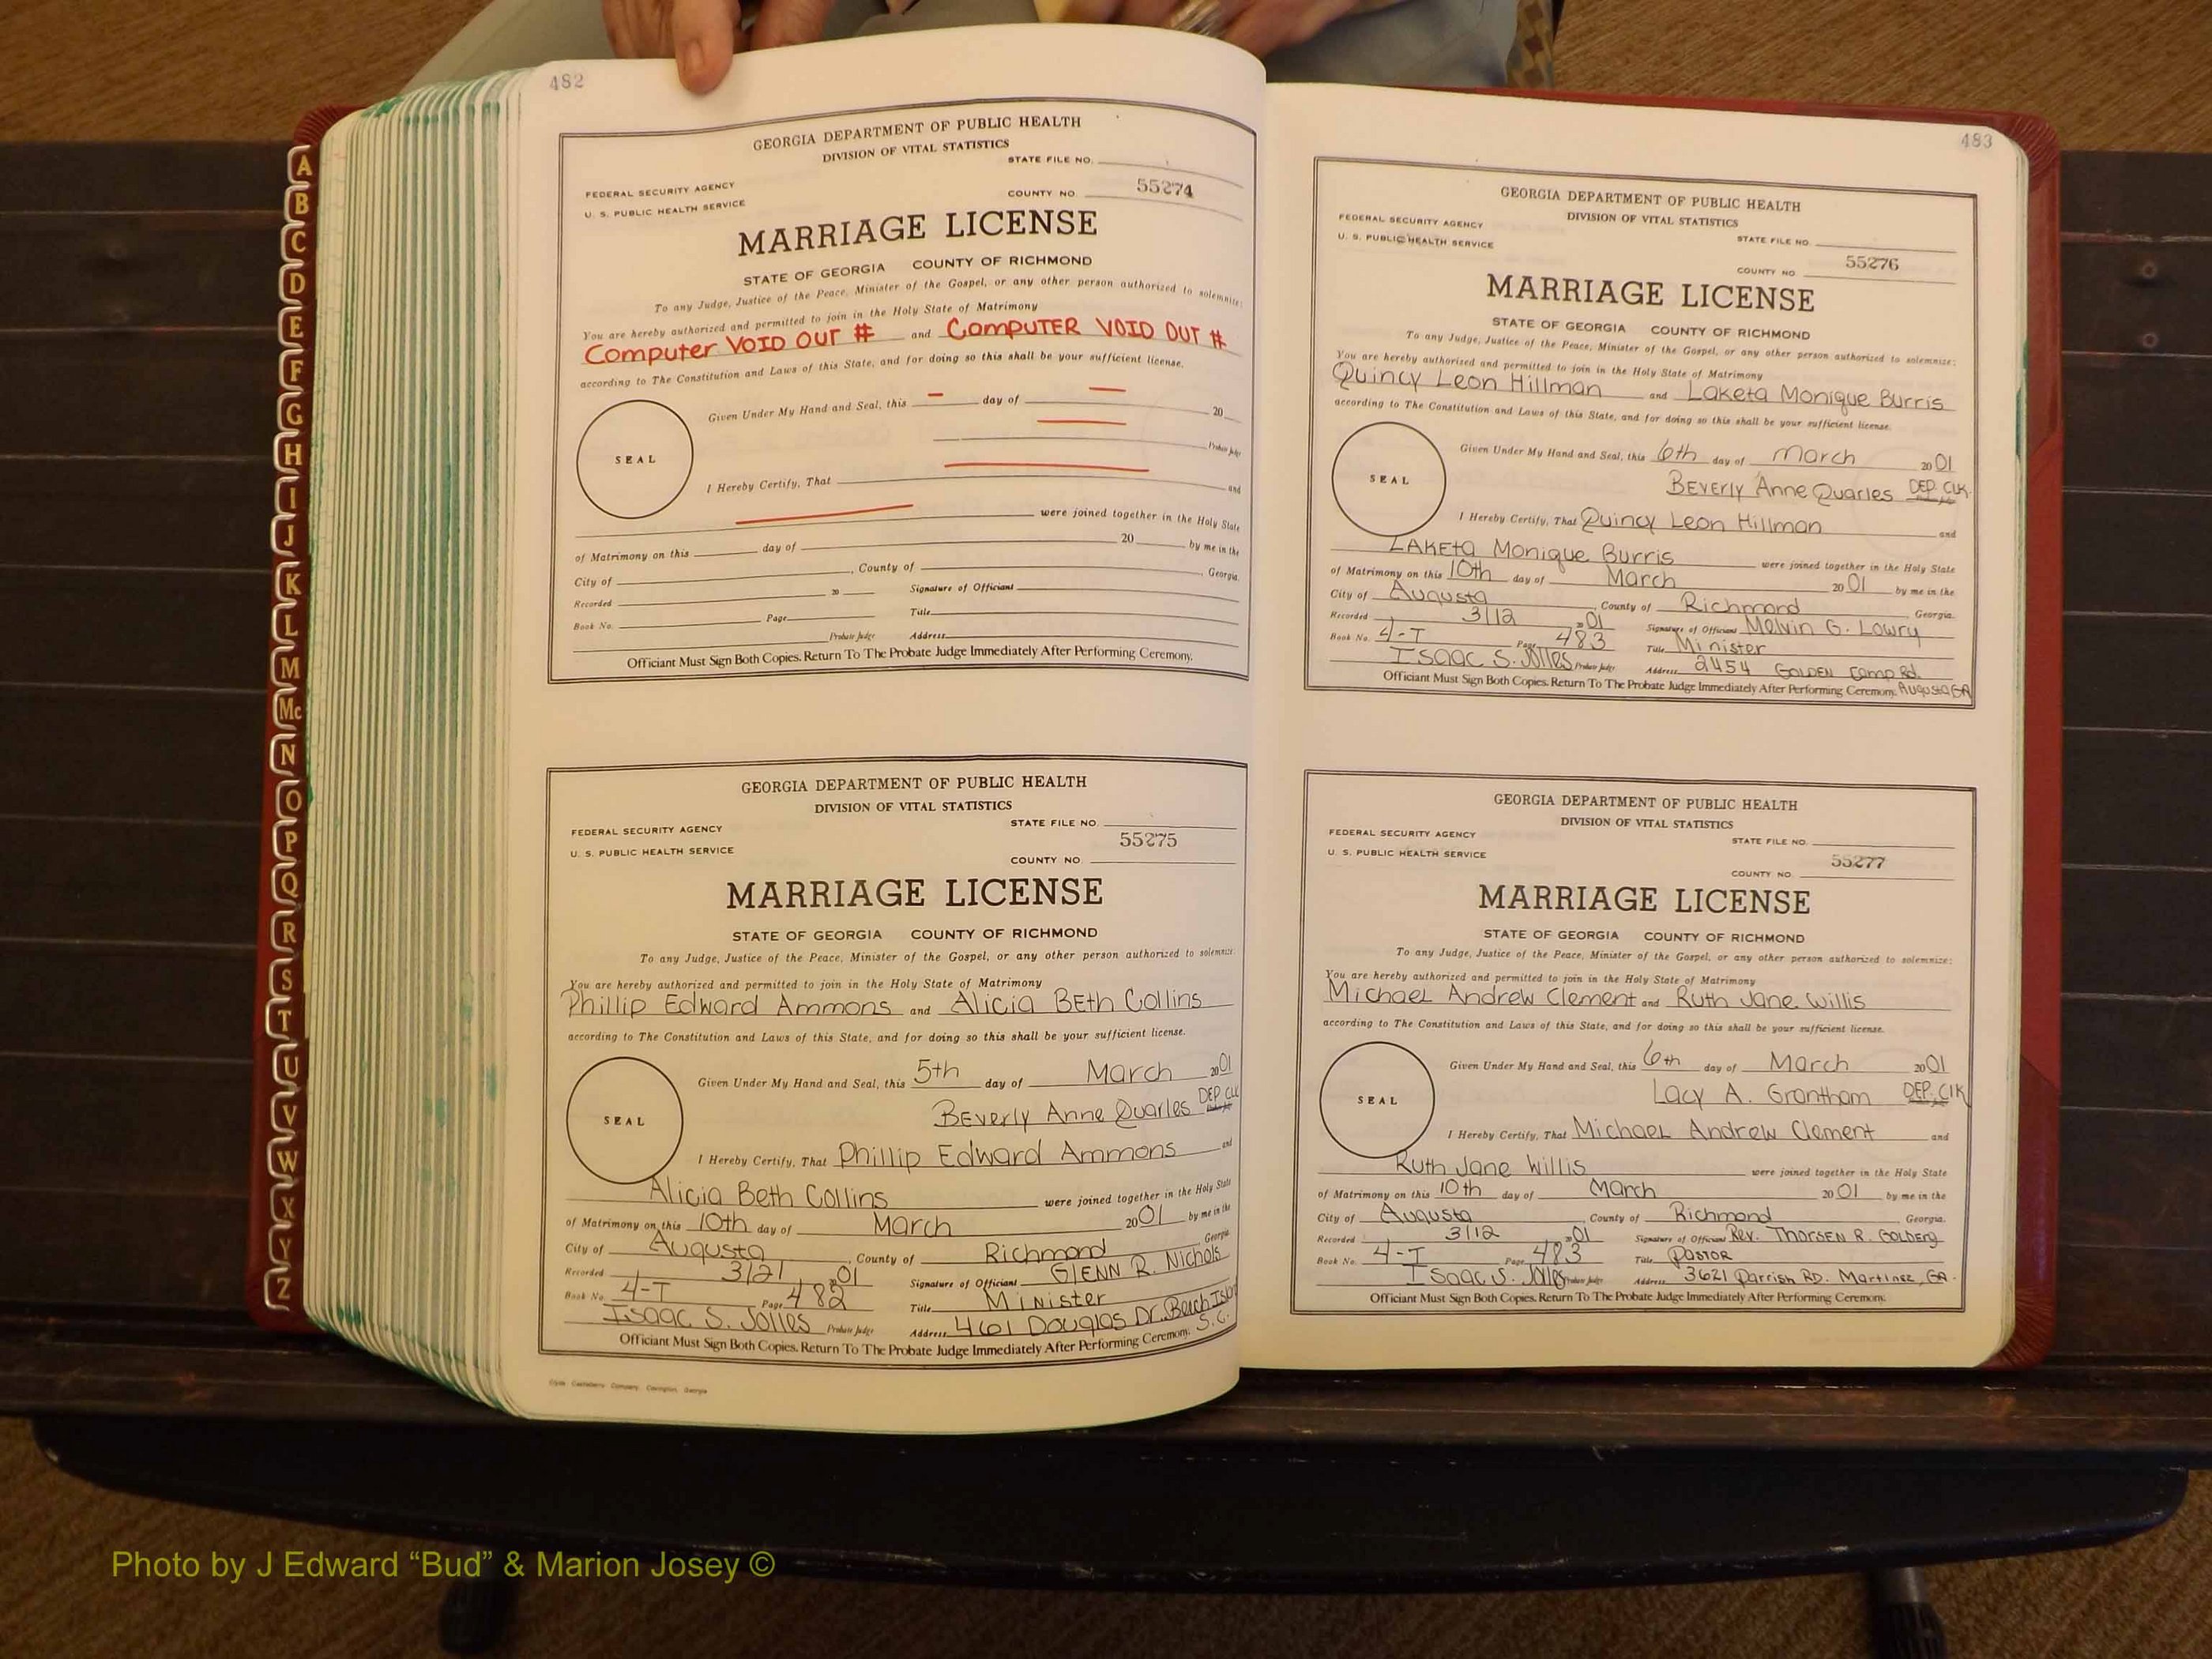 A
B
C
D
E
F
G
H
I
J
K
L
M
Mc
N
O
P
Q
R
S
T
U
V
W
X
Y
Z
482
GEORGIA DEPARTMENT OF PUBLIC HEALTH
DIVISION OF VITAL STATISTICS
STATE FILE NO.
FEDERAL SECURITY AGENCY
U. S. PUBLIC HEALTH SERVICE
COUNTY NO. 55274
MARRIAGE LICENSE
STATE OF GEORGIA COUNTY OF RICHMOND
To any Judge, Justice of the Peace, Minister of the Gospel, or any other person authorized to solemnize:
You are hereby authorized and permitted to join in the Holy State of Matrimony
Computer VOID OUT # and COMPUTER VOID OUT #
according to The Constitution and Laws of this State, and for doing so this shall be your sufficient license.
Given Under My Hand and Seal, this — day of — 20
Probate Judge
SEAL
I Hereby Certify, That and
were joined together in the Holy State
of Matrimony on this day of 20 by me in the
City of , County of Georgia.
Recorded 20 Signature of Officiant
Book No. Page Title
Probate Judge Address
Officiant Must Sign Both Copies. Return To The Probate Judge Immediately After Performing Ceremony.
GEORGIA DEPARTMENT OF PUBLIC HEALTH
DIVISION OF VITAL STATISTICS
STATE FILE NO.
FEDERAL SECURITY AGENCY
U. S. PUBLIC HEALTH SERVICE
COUNTY NO. 55275
MARRIAGE LICENSE
STATE OF GEORGIA COUNTY OF RICHMOND
To any Judge, Justice of the Peace, Minister of the Gospel, or any other person authorized to solemnize:
You are hereby authorized and permitted to join in the Holy State of Matrimony
Phillip Edward Ammons and Alicia BEth Collins
according to The Constitution and Laws of this State, and for doing so this shall be your sufficient license.
Given Under My Hand and Seal, this 5th day of March 2001
BEverly Anne Quarles DEP CLK
SEAL
I Hereby Certify, That Phillip Edward Ammons and
Alicia Beth Collins were joined together in the Holy State
of Matrimony on this 10th day of March 2001 by me in the
City of Augusta , County of Richmond Georgia
Recorded 3/21 2001 Signature of Officiant GLENN R. Nichols
Book No. 4-T Page 482 Title Minister
Isaac S. Jolles Probate Judge Address 461 Douglas Dr. Beech Islan S.C.
Officiant Must Sign Both Copies. Return To The Probate Judge Immediately After Performing Ceremony.
483
GEORGIA DEPARTMENT OF PUBLIC HEALTH
DIVISION OF VITAL STATISTICS
FEDERAL SECURITY AGENCY
U. S. PUBLIC HEALTH SERVICE
STATE FILE NO.
COUNTY NO 55276
MARRIAGE LICENSE
STATE OF GEORGIA COUNTY OF RICHMOND
To any Judge, Justice of the Peace, Minister of the Gospel, or any other person authorized to solemnize:
You are hereby authorized and permitted to join in the Holy State of Matrimony
Quincy Leon Hillman and Laketa Monique Burris
according to The Constitution and Laws of this State, and for doing so this shall be your sufficient license.
Given Under My Hand and Seal, this 6th day of March 2001
BEVErly Anne Quarles DEP. CLK.
SEAL
I Hereby Certify, That Quincy Leon Hillman and
LAKEta Monique Burris were joined together in the Holy State
of Matrimony on this 10th day of March 2001 by me in the
City of Augusta , County of Richmond Georgia.
Recorded 3/12 2001 Signature of Officiant Melvin G. Lowry
Book No. 4-T Page 483 Title Minister
Isaac S. Jolles Probate Judge Address 2454 GOLDEN Camp Rd.
Officiant Must Sign Both Copies. Return To The Probate Judge Immediately After Performing Ceremony. Augusta GA
GEORGIA DEPARTMENT OF PUBLIC HEALTH
DIVISION OF VITAL STATISTICS
FEDERAL SECURITY AGENCY
U. S. PUBLIC HEALTH SERVICE
STATE FILE NO.
COUNTY NO. 55277
MARRIAGE LICENSE
STATE OF GEORGIA COUNTY OF RICHMOND
To any Judge, Justice of the Peace, Minister of the Gospel, or any other person authorized to solemnize:
You are hereby authorized and permitted to join in the Holy State of Matrimony
Michael Andrew Clement and Ruth Jane Willis
according to The Constitution and Laws of this State, and for doing so this shall be your sufficient license.
Given Under My Hand and Seal, this 6th day of March 2001
Lacy A. Grantham DEP. CLK
SEAL
I Hereby Certify, That Michael Andrew Clement and
Ruth Jane Willis were joined together in the Holy State
of Matrimony on this 10th day of March 2001 by me in the
City of Augusta , County of Richmond Georgia.
Recorded 3/12 2001 Signature of Officiant Rev. THORSEN R. GOLDBERG
Book No. 4-T Page 483 Title PASTOR
Isaac S. Jolles Probate Judge Address 3621 Parrish RD. Martinez, GA.
Officiant Must Sign Both Copies. Return To The Probate Judge Immediately After Performing Ceremony.
Photo by J Edward “Bud” & Marion Josey ©